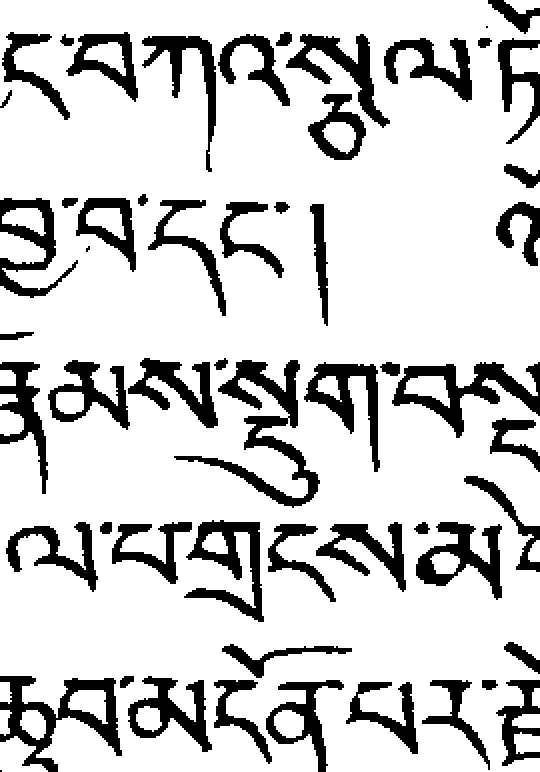 ང་བཀའ་སྩལ་ཏོ
བྱ་བ་དང་།
རྣམས་སྡུག་བསྔ
ལ་པ་གྲངས་མ
ཆུབ་མངོན་པར་